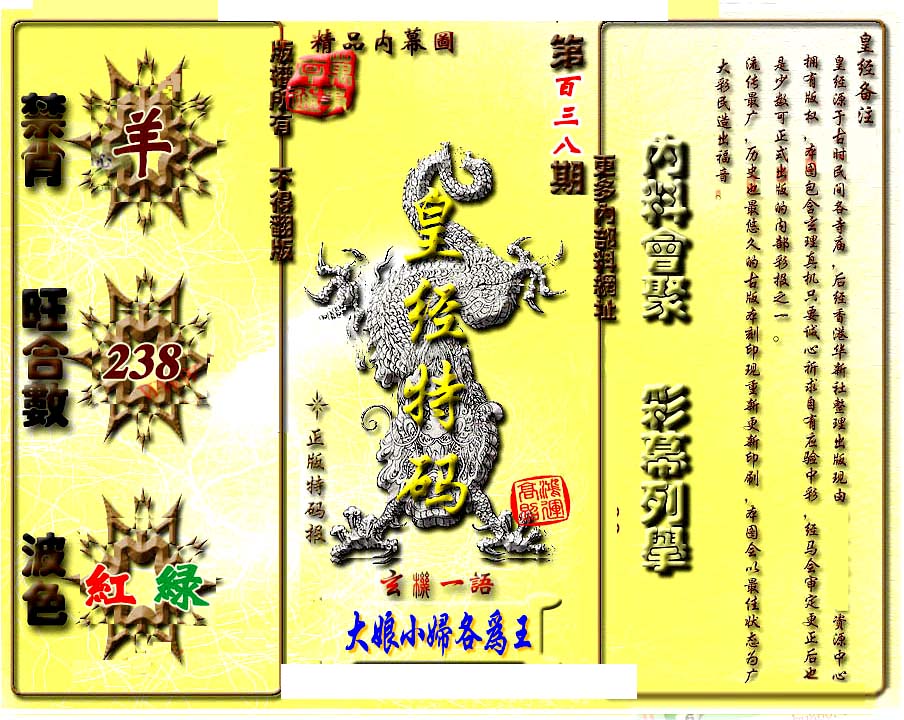 精品内幕圖
版權所有 不得翻版
禁肖
羊
旺合數
238
波色
紅 綠
皇经特码
正版特码报
鴻運高照
玄機一語
大娘小婦各爲王
第百三八期
更多內部料網址
內料會聚 彩幕列舉
皇经备注
皇经源于古时民间各寺庙,后经香港华新社整理出版现由 资源中心
拥有版权,本图包含玄理真机只要诚心祈求自有应验中彩,经马会审定更正后也
是少数可正式出版的内部彩报之一。
流传最广,历史也最悠久的古版本刻印现重新更新印刷,本图会以最佳状态为广
大彩民造出福音